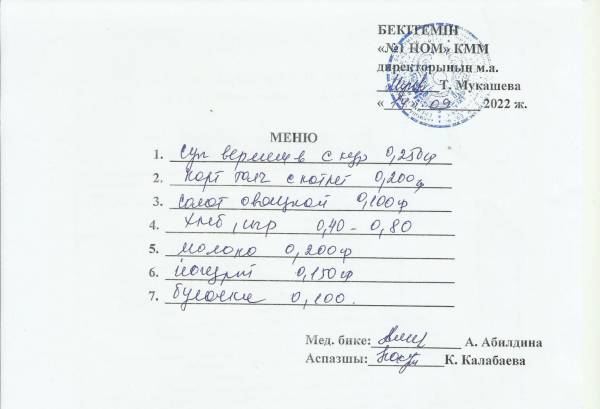 БЕКІТЕМІН
«№1 НОМ» КММ
директорының м.а.
Т. Мукашева
« 14 » 09 2022 ж.
МЕНЮ
1. Суп вермишев с кур 0,250гр
2. Карт толч с котлет 0,200г
3. салат овощной 0,100гр
4. хлеб, сыр 0,40 - 0,80
5. молоко 0,200гр
6. йогурт 0,150гр
7. булочки 0,100.
Мед. бике: А. Абилдина
Аспазшы: К. Калабаева